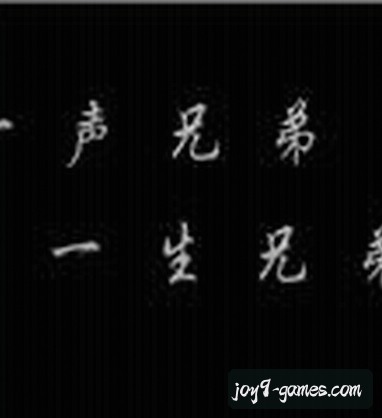 一声兄弟
一生兄弟
joy9-games.com